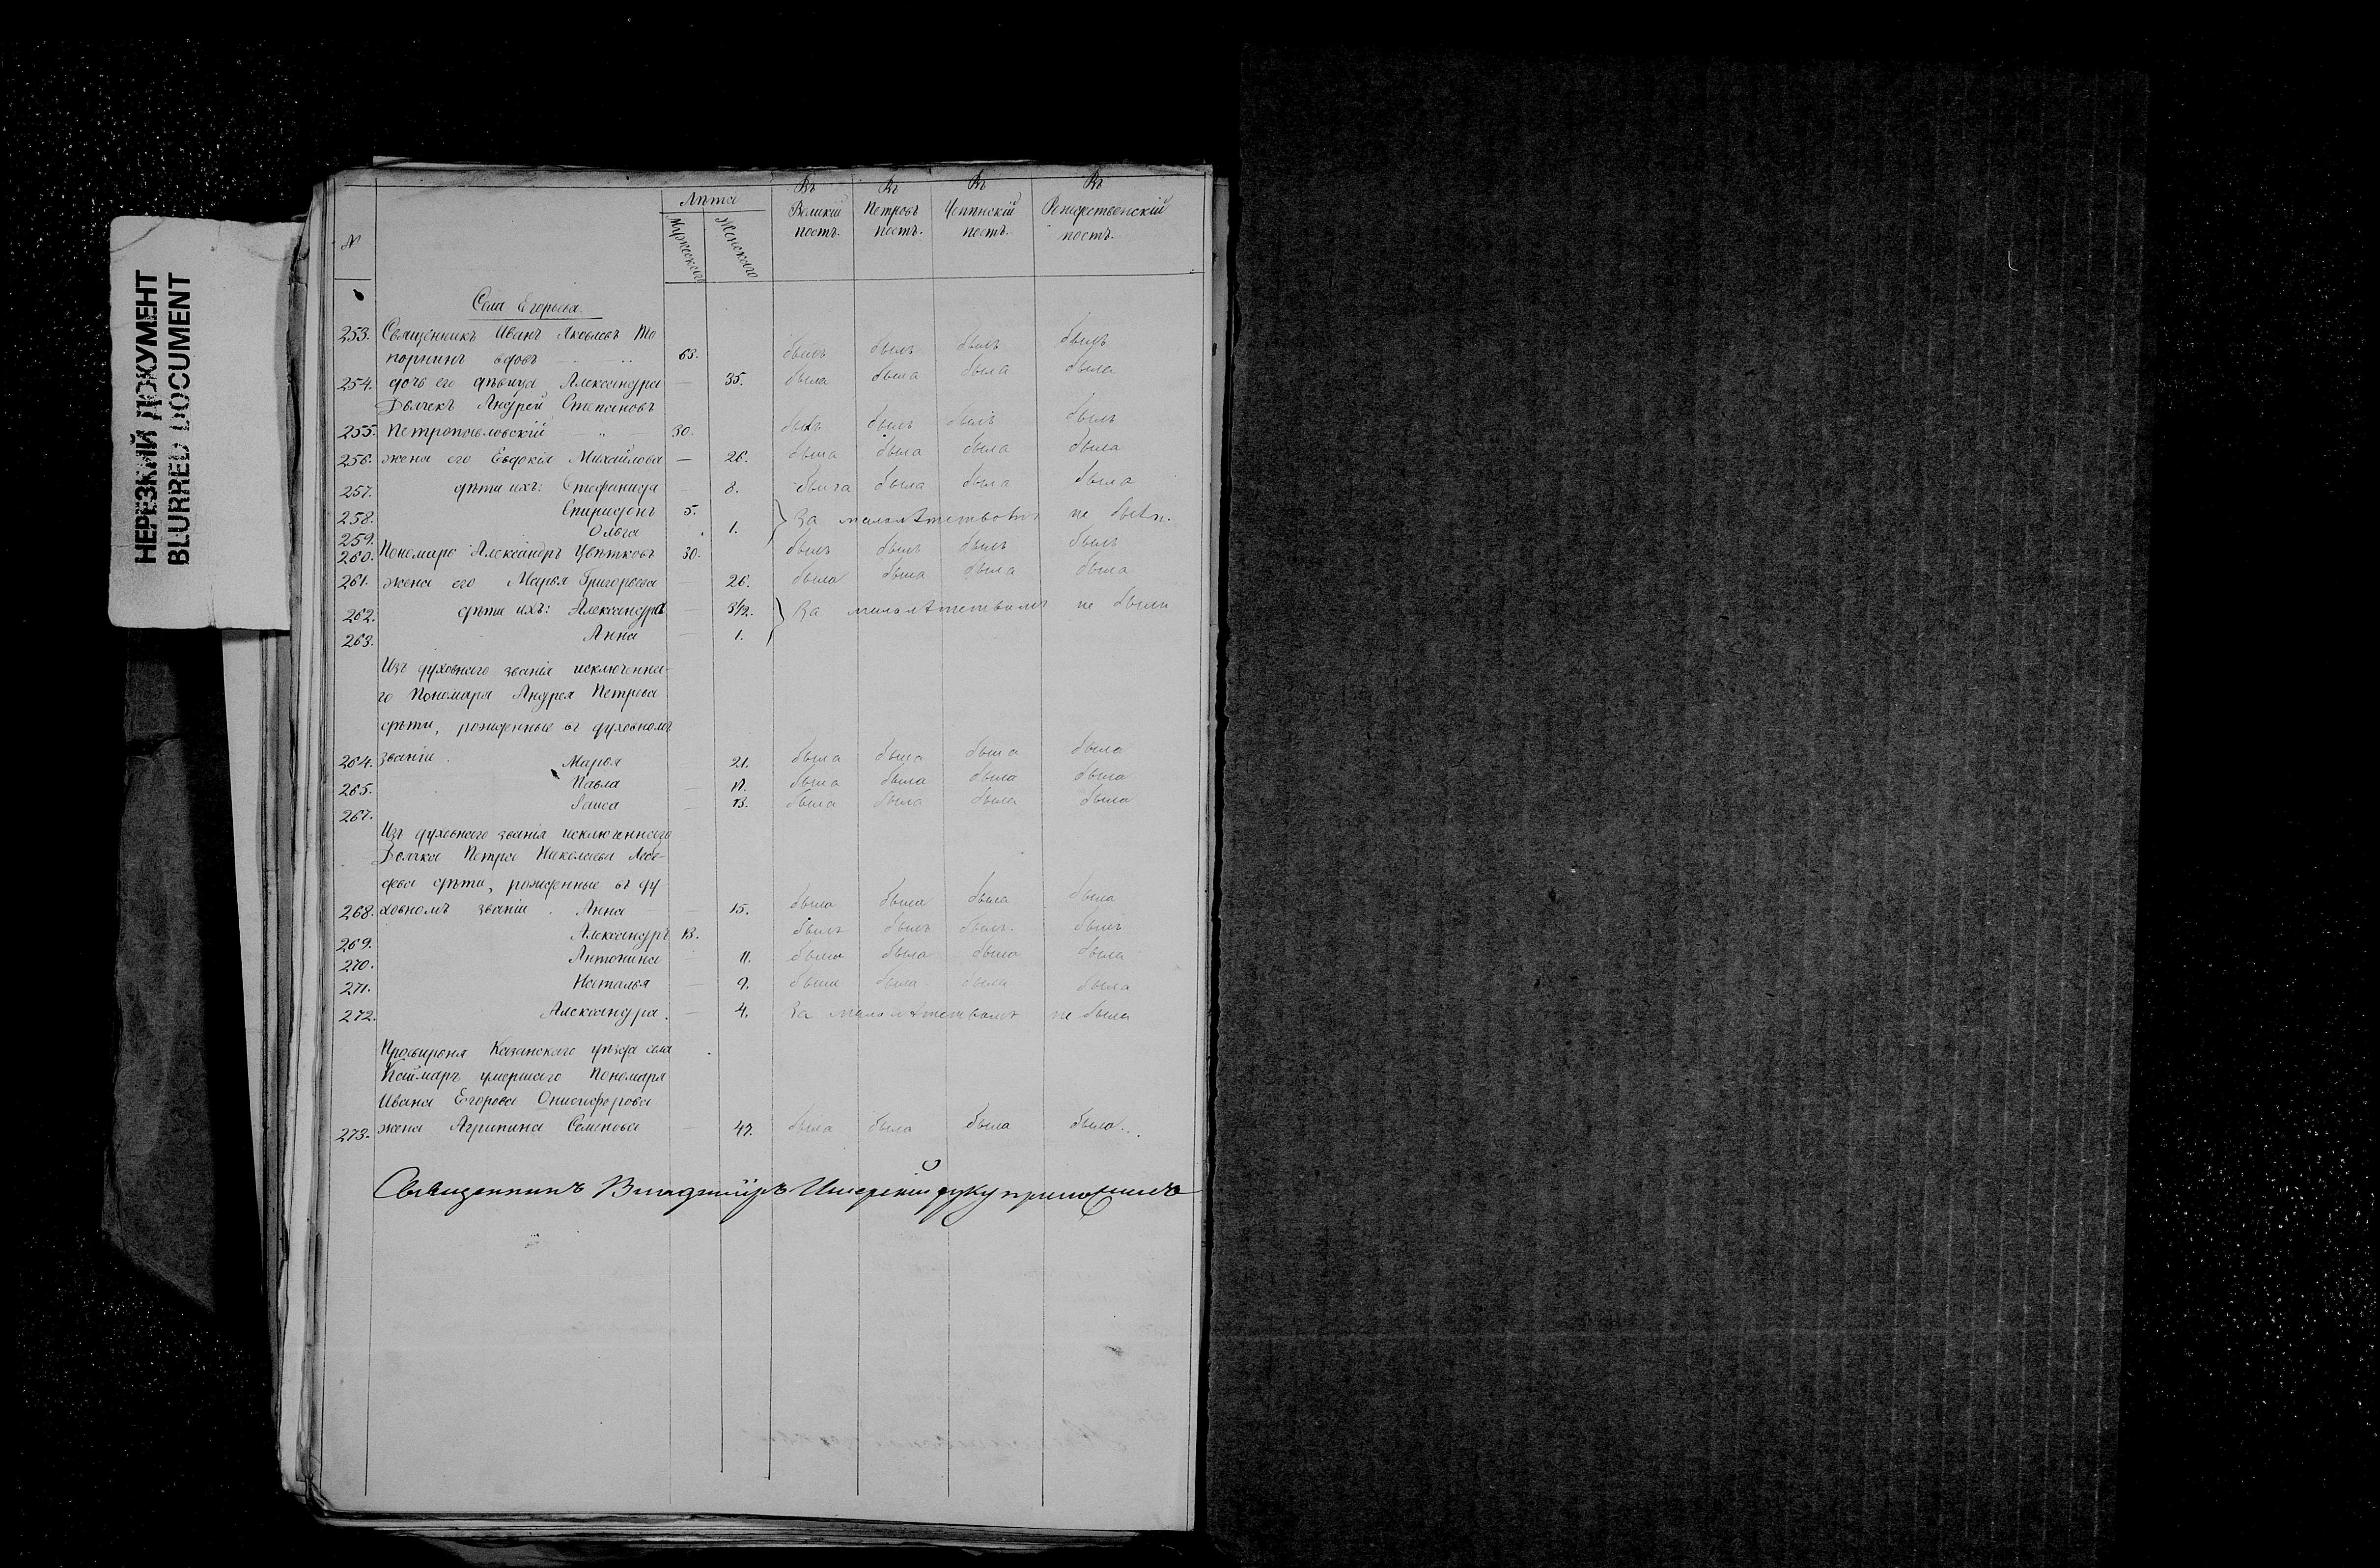 НЕРЕЗКИЙ ДОКУМЕНТ
BLURRED DOCUMENT
№ Лѣта Мужескаго Женскаго Въ Великій постъ. Въ Петровъ постъ. Въ Успѣнскій постъ. Въ Рождественскій постъ.
Села Егорьева
253. Священникъ Иванъ Яковлевъ То
порнинъ вдовъ 63. былъ былъ былъ былъ
254. дочь его дѣвица Александра — 35. была была была была
Дьячекъ Андрей Степановъ
255. Петропавловскій „ 30. былъ былъ былъ былъ
256. жена его Евдокія Михайлова — 26. была была была была
257. дѣти ихъ: Стефанида — 8. была была была была
258. Спиридонъ 5. За малолѣтствомъ не были.
259. Ольга 1.
260. Пономарь Александръ Цвѣтковъ 30. былъ былъ былъ былъ
261. жена его Марья Григорьева — 26. была была была была
262. дѣти ихъ: Александра — 3½. За малолѣтствомъ не были
263. Анна — 1.
Изъ духовнаго званія исключенна-
го Пономаря Андрея Петрова
дѣти, рожденные въ духовномъ
264. званіи. Марья 21. была была была была
265. Павла — 17. была была была была
267. Раиса — 13. была была была была
Изъ духовнаго званія исключеннаго
Дьячка Петра Николаева Лебе-
дева дѣти, рожденные въ ду
268. ховномъ званіи. Анна — 15. была была была была
269. Александръ 13. былъ былъ былъ былъ
270. Антонина 11. была была была была
271. Наталья — 9. была была была была
272. Александра. — 4. За малолѣтствомъ не была
Просвирня Казанскаго уѣзда села
Каймаръ умершаго Пономаря
Ивана Егорова Онисифорова
273. жена Агрипина Семенова — 47. была была была была.
Священникъ Владиміръ руку приложилъ